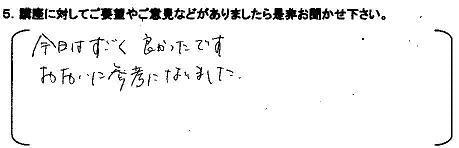 5. 講座に対してご要望やご意見などがありましたら是非お聞かせ下さい。
今日はすごく 良かったです
おおいに参考になりました.